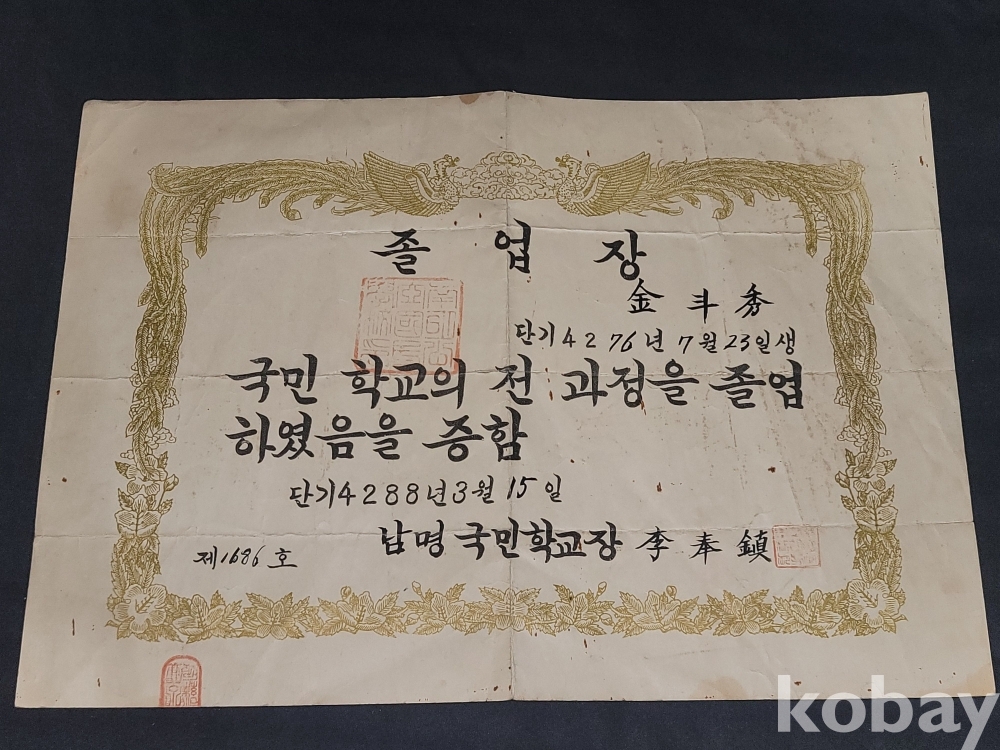 졸업장
金斗秀
단기4276년7월23일생
국민 학교의 전 과정을 졸업
하였음을 증함
단기4288년3월15일
남명국민학교장 李奉鎭
제1686호
kobay